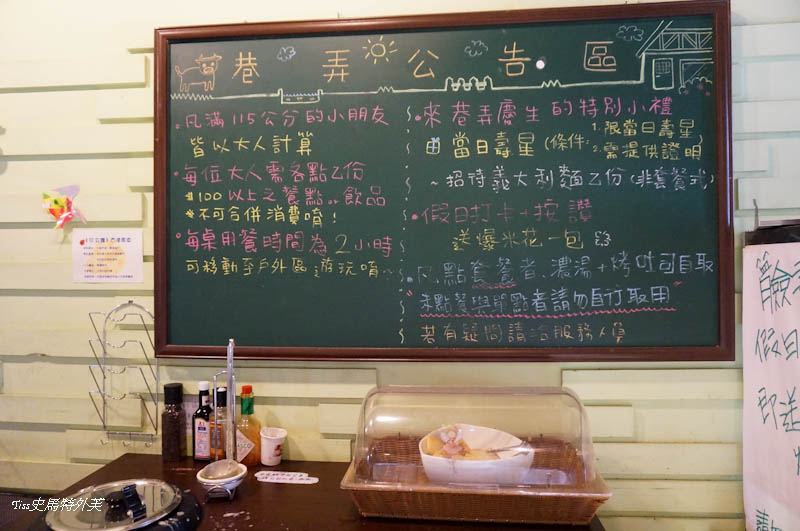 巷弄公告區
•凡滿115公分的小朋友
皆以大人計算
•每位大人需各點乙份
$100以上之餐點or飲品
*不可合併消費唷!
•每桌用餐時間為2小時
可移動至戶外區遊玩唷~
•來巷弄慶生的特別小禮
當日壽星(條件:1.限當日壽星
2.需提供證明)
~招待義大利麵乙份(非套餐式)
•假日打卡+按讚
送爆米花一包
•凡點套餐者.濃湯+烤吐司自取
"未點餐與單點者請勿自行取用"
若有疑問請洽服務人員
假日
即送
Tiss史馬特外芙